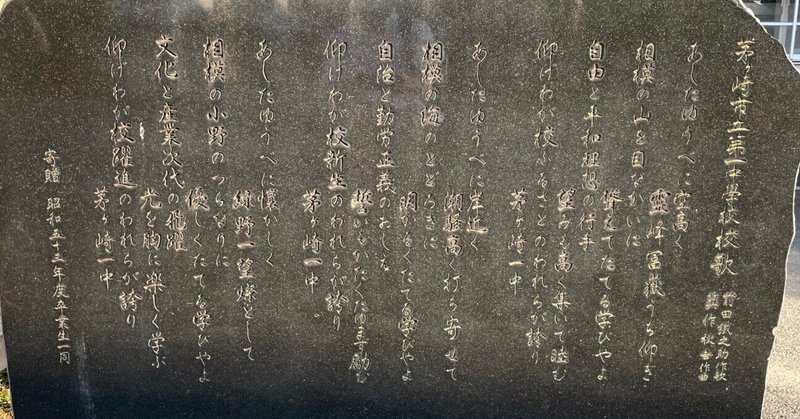 茅ヶ崎市立第一中學校校歌
野田銕之助作歌
箕作秋吉作曲
あしたゆうべに空高く
霊峰冨嶽うち仰ぎ
相模の山を目なかいに
聳えてたてる学びやよ
自由と平和理想の行手
望みも高く集いて睦む
仰げわが校ふるさとのわれらが誇り
茅ヶ崎一中
あしたゆうべに岸近く
潮騒高く打ち寄せて
相模の海のとどろきに
明るくたてる学びやよ
自治と勤労正義のおしえ
誓いもかたくたゆまず励む
仰げわが校新生のわれらが誇り
茅ヶ崎一中
あしたゆうべに懐かしく
緑野一望燦として
相模の小野のつらなりに
優しくたてる学びやよ
文化と産業次代の飛躍
光を胸に楽しく学ぶ
仰げわが校躍進のわれらが誇り
茅ヶ崎一中
寄贈 昭和五十三年度卒業生一同